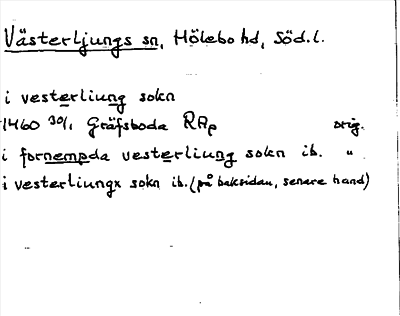 Västerljungs sn, Hölebo hd, Söd.l.
i vesterliung sokn
1460 30/1 Gräfsboda RAp orig.
i fornempda vesterliung sokn ib. "
i vesterliungx sokn ib. (på baksidan, senare hand)